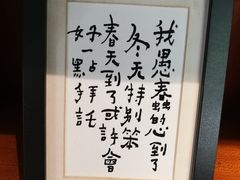 我愚蠢的心到了
冬天特別笨
春天到了或許會
好一點拜託